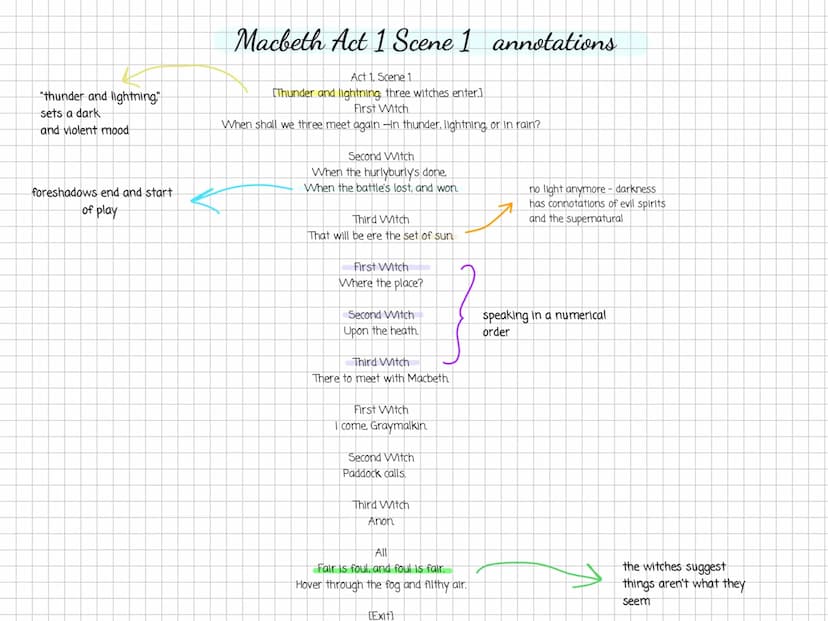 Macbeth Act 1 Scene 1 annotations
Act 1, Scene 1
[Thunder and lightning, three witches enter.]
"thunder and lightning,"
sets a dark
and violent mood
First Witch
When shall we three meet again –in thunder, lightning, or in rain?
Second Witch
When the hurlyburly's done,
When the battle's lost, and won.
foreshadows end and start
of play
Third Witch
That will be ere the set of sun.
no light anymore - darkness
has connotations of evil spirits
and the supernatural
First Witch
Where the place?
Second Witch
Upon the heath.
Third Witch
There to meet with Macbeth.
speaking in a numerical
order
First Witch
I come, Graymalkin.
Second Witch
Paddock calls.
Third Witch
Anon.
All
Fair is foul, and foul is fair,
Hover through the fog and filthy air.
the witches suggest
things aren't what they
seem
[Exit]